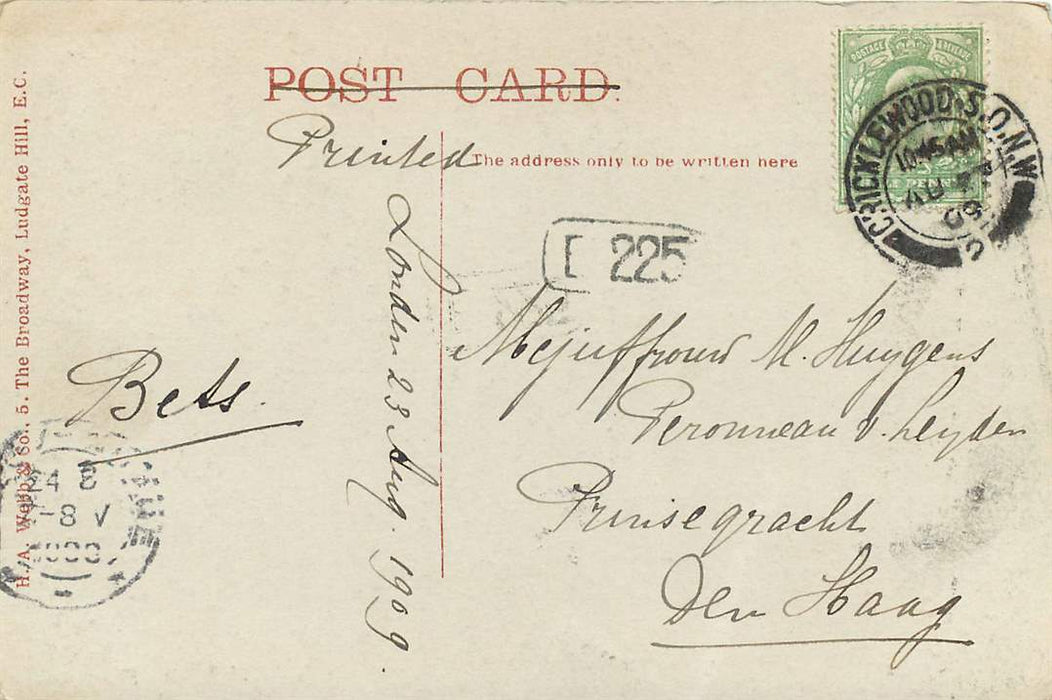 POST CARD.
Printed
The address only to be written here
POSTAGE REVENUE
PENNY
CRICKLEWOOD. S.O. N.W
10.45 AM
AU
09
225
London 23 Aug. 1909.
Bets.
Mejuffrouw M. Huygens
Peronneau v. Leyden
Prinsegracht
Den Haag
H. A. Webb & Co., 5. The Broadway, Ludgate Hill, E.C.
24 8
-8 V